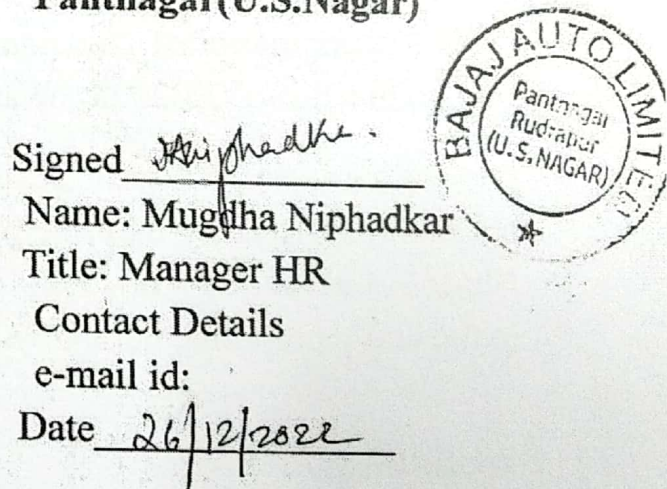 Pantnagar(U.S.Nagar)
BAJAJ AUTO LIMITED
Pantnagar
Rudrapur
(U.S. NAGAR)
Signed
Name: Mugdha Niphadkar
Title: Manager HR
Contact Details
e-mail id:
Date 26/12/2022